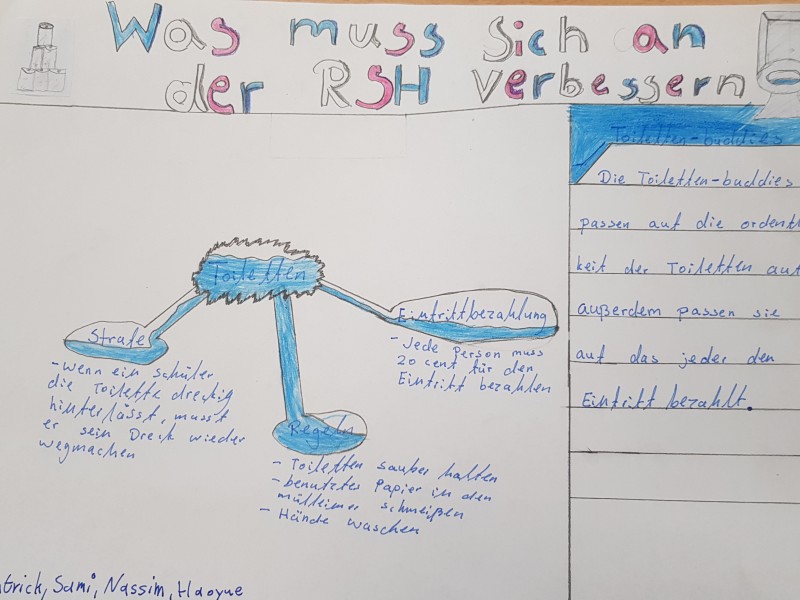 Was muss sich an
der RSH verbessern
Toiletten
Strafe
- Wenn ein schüler
die Toilette dreckig
hinterlässt, musst
er sein Dreck wieder
wegmachen
Regeln
- Toiletten sauber halten
- benutztes Papier in den
mülleimer schmeißen
- Hände waschen
Eintrittbezahlung
- Jede Person muss
20 cent für den
Eintritt bezahlen
Toiletten-buddies
Die Toiletten-buddies
passen auf die ordentl
keit der Toiletten auf
außerdem passen sie
auf das jeder den
Eintritt bezahlt.
trick, Sami, Nassim, Haoyue